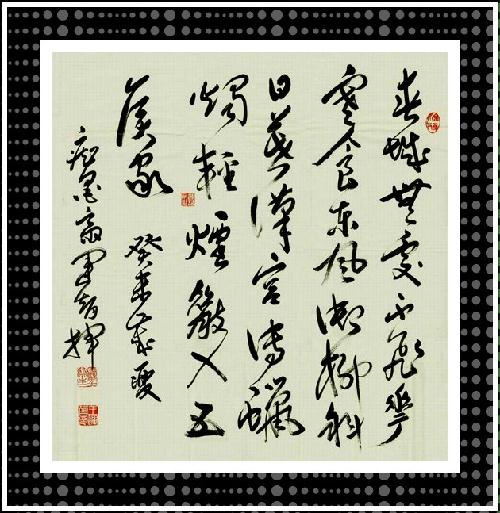 春城無處不飛花
寒食東風御柳斜
日暮漢宮傳蠟
燭輕煙散入五
侯家 癸未盛夏
痴墨斋